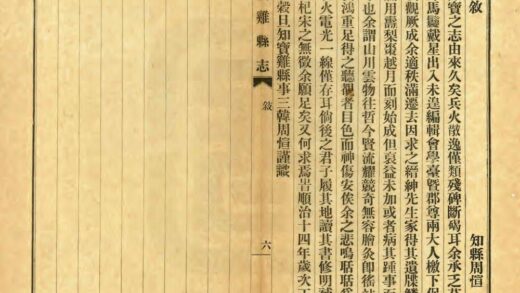 敘
知縣周愃
寶之志由來久矣兵火散逸僅類殘碑斷碣耳余承乏
馬鬣戴星出入未遑編輯會學臺暨郡尊兩大人檄下俾
觀厥成余適秩滿遷去因求之縉紳先生家得其遺牒
用梨棗越月而刻始成但裒益未加或者病其踵事而
也余謂山川雲物往哲今賢流耀競奇無容膾灸卽徭
鴻重足得之聽覩者目色而神傷安俟余之悲鳴聒聒
火電光一線僅存耳倘後之君子履其地讀其書修明補
杞宋之無徵余願足矣又何求焉旹順治十四年歲次丁
穀旦知寶雞縣事三韓周愃謹識
雞縣志
敘
六